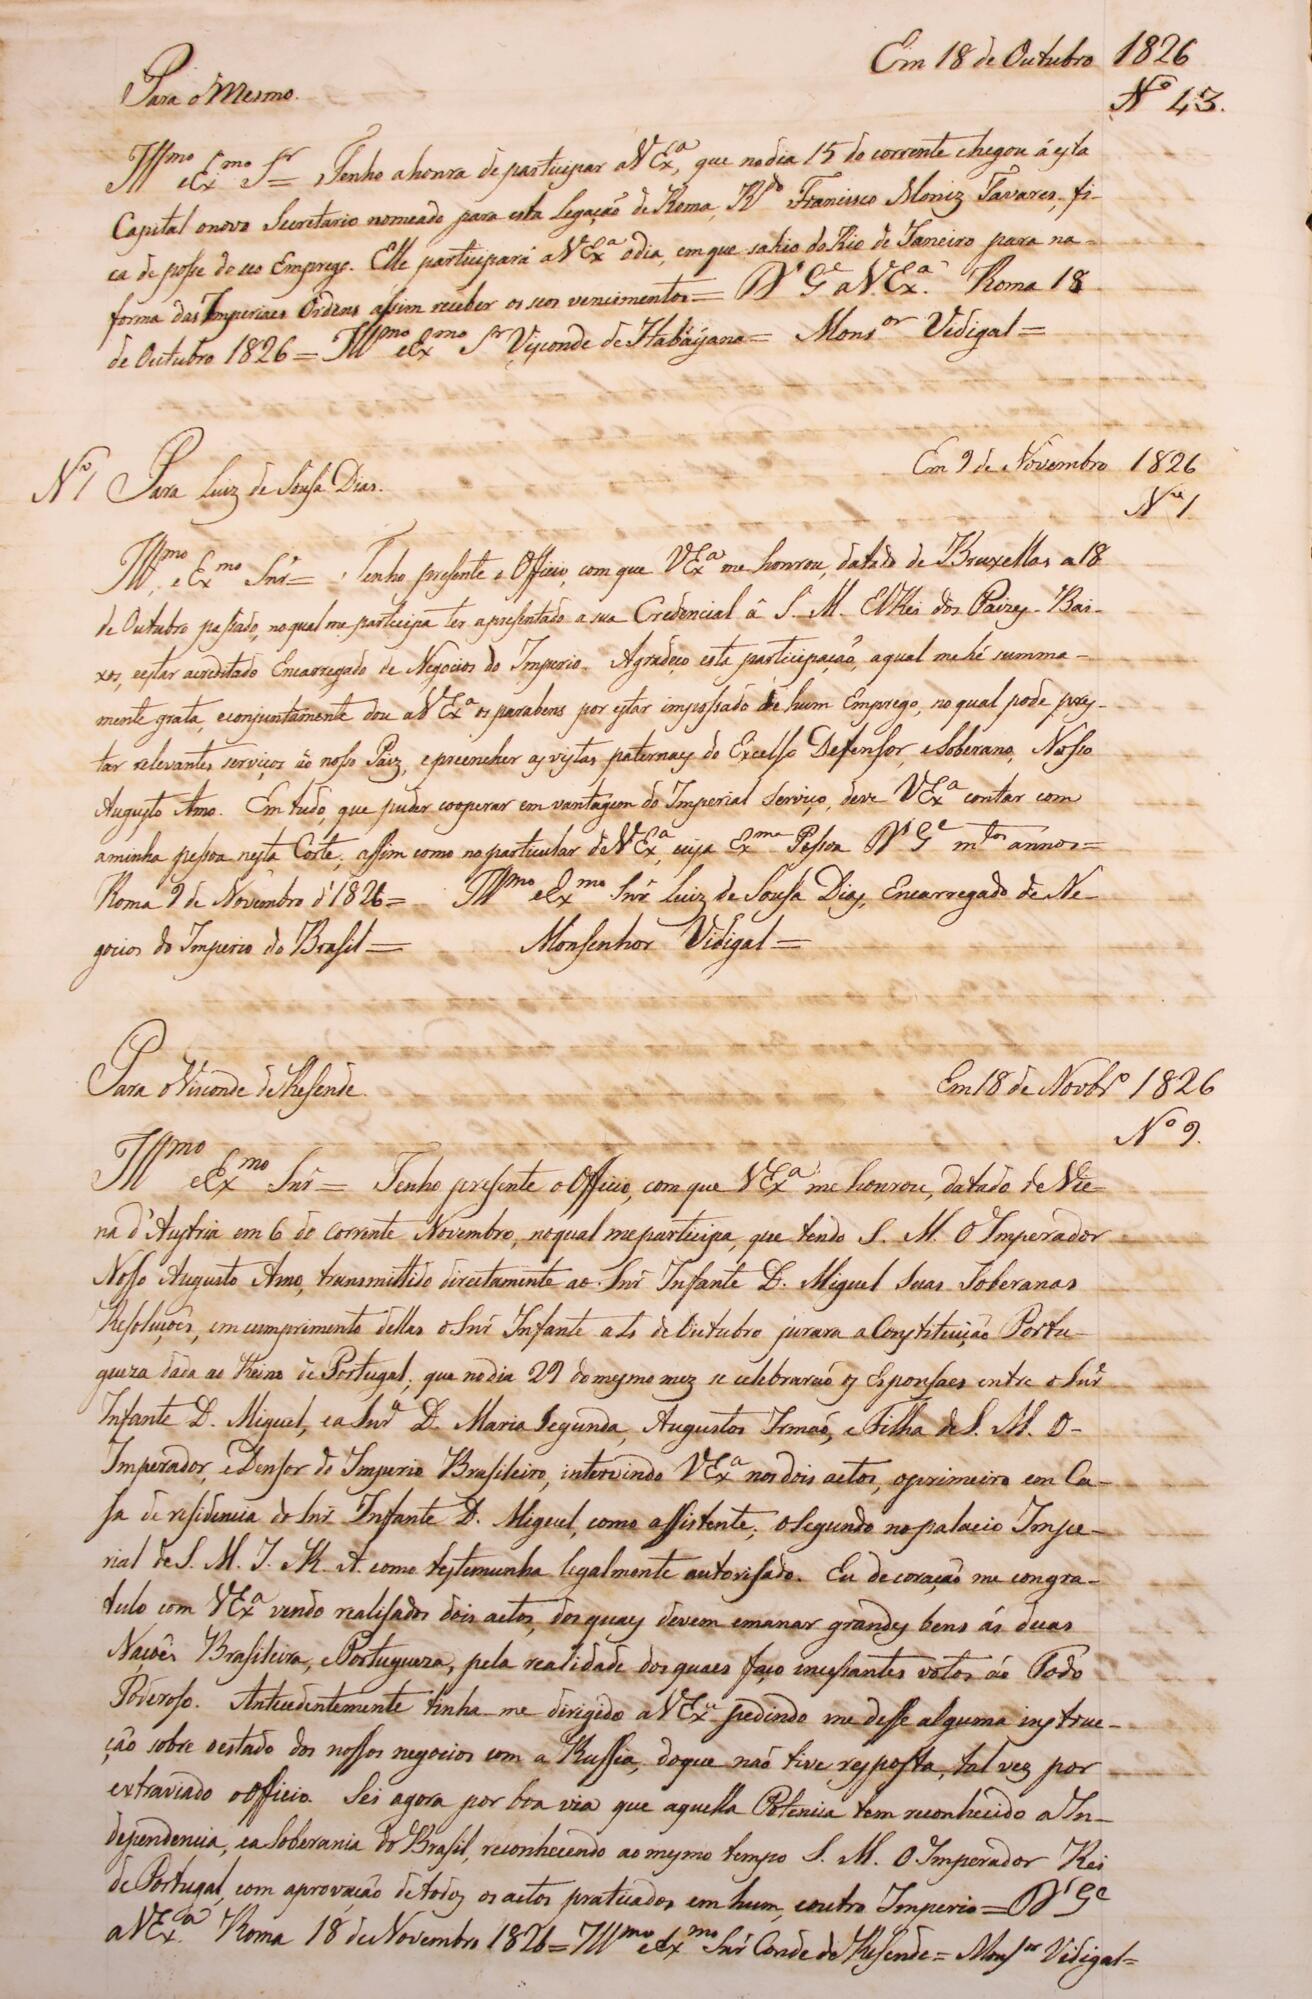 Em 18 de Outubro 1826
Para o Mesmo.
Nº 43.
Illmo e Exmo Sr = Tenho a honra de participar a VExa, que no dia 15 do corrente chegou á esta
Capital o novo Secretario nomeado para esta Legação de Roma, Rdo Francisco Moniz Tavares, fi-
ca de posse do seo Emprego. Elle participará a VExa o dia, em que sahio do Rio de Janeiro para na
forma das Imperiaes Ordens assim receber os seos vencimentos = Ds Ge a VExa. Roma 18
de Outubro 1826 = Illmo e Exmo Sr Visconde de Itabayana = Monsor Vidigal =
Nº 1 Para Luiz de Sousa Dias. Em 9 de Novembro 1826
Nº 1
Illmo e Exmo Snr = Tenho presente o Officio, com que VExa me honrou, datado de Bruxellas a 18
de Outubro passado, no qual me participa ter apresentado a sua Credencial â S. M. ElRei dos Paizes-Bai-
xos, e estar acreditado Encarregado de Negocios do Imperio. Agradeço esta participação, a qual me hé summa-
mente grata, e conjuntamente dou a VExa os parabens por estar impossado de hum Emprego, no qual pode pres-
tar relevantes serviços ao nosso Paiz, e preencher as vistas paternaes do Excelso Defensor, e Soberano, Nosso
Augusto Amo. Em tudo, que puder cooperar em vantagem do Imperial Serviço, deve VExa contar com
a minha pessoa nesta Corte, assim como no particular de VExa, cuja Exma Pessoa Ds Ge mtos annos =
Roma 9 de Novembro d'1826 = Illmo e Exmo Snr Luiz de Sousa Dias, Encarregado de Ne-
gocios do Imperio do Brasil = Monsenhor Vidigal =
Para o Visconde de Resende. Em 18 de Novbro 1826
Nº 9.
Illmo e Exmo Snr = Tenho presente o Officio, com que VExa me honrou, datado de Vie-
na d'Austria em 6 do corrente Novembro, no qual me participa, que tendo S. M. O Imperador
Nosso Augusto Amo, transmittido directamente ao Snr Infante D. Miguel Suas Soberanas
Resoluções, em cumprimento dellas o Snr Infante a 4 de Outubro jurara a Constituição Portu-
gueza dada ao Reino de Portugal; que no dia 29 do mesmo mez se celebrarão os Esponsaes entre o Snr
Infante D. Miguel, e a Snra D. Maria Segunda, Augustos Irmaõ, e Filha de S. M. O
Imperador, e Densor do Imperio Brasileiro, intervindo VExa nos dois actos, o primeiro em Ca-
sa de residencia do Snr Infante D. Miguel, como assistente; o segundo no palacio Impe-
rial de S. M. I. R. A. como testemunha legalmente autorisado. Eu de coração me congra-
tulo com VExa vendo realisados dois actos, dos quaes devem emanar grandes bens ás duas
Naçoẽs Brasileira, e Portugueza, pela realidade dos quaes faço incessantes votos ao Todo
Poderoso. Antecedentemente tinha-me dirigido a VExa pedindo me desse alguma instruc-
ção sobre o estado dos nossos negocios com a Russia, do que naõ tive resposta, tal vez por
extraviado o Officio. Sei agora por boa via que aquella Potencia tem reconhecido a In-
dependencia, e a Soberania do Brasil, reconhecendo ao mesmo tempo S. M. O Imperador Rei
de Portugal, com aprovação de todos os actos praticados em hum, e outro Imperio = Ds Ge
a VExa. Roma 18 de Novembro 1826 = Illmo e Exmo Snr Conde de Resende = Monsor Vidigal =